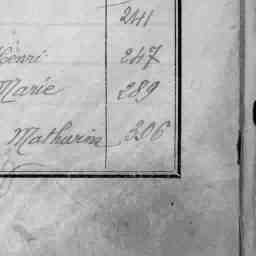 241
Henri 247
Marie 289
Mathurin 306